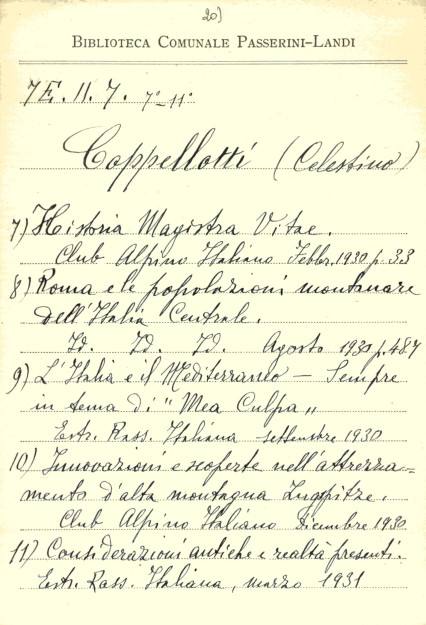 20)
BIBLIOTECA COMUNALE PASSERINI-LANDI
7E. 11. 7. 7°-11°
Coppellotti (Celestino)
7) Historia Magistra Vitae.
Club Alpino Italiano Febbr. 1930 p. 33
8) Roma e le popolazioni montanare
dell'Italia Centrale.
Id. Id. Id. Agosto 1930 p. 487
9) L'Italia e il Mediterraneo - Sempre
in tema di "Mea Culpa"
Estr. Rass. Italiana settembre 1930
10) Innovazioni e scoperte nell'attrezza=
mento d'alta montagna Zugspitze.
Club Alpino Italiano Dicembre 1930
11) Considerazioni antiche e realtà presenti.
Estr. Rass. Italiana, marzo 1931